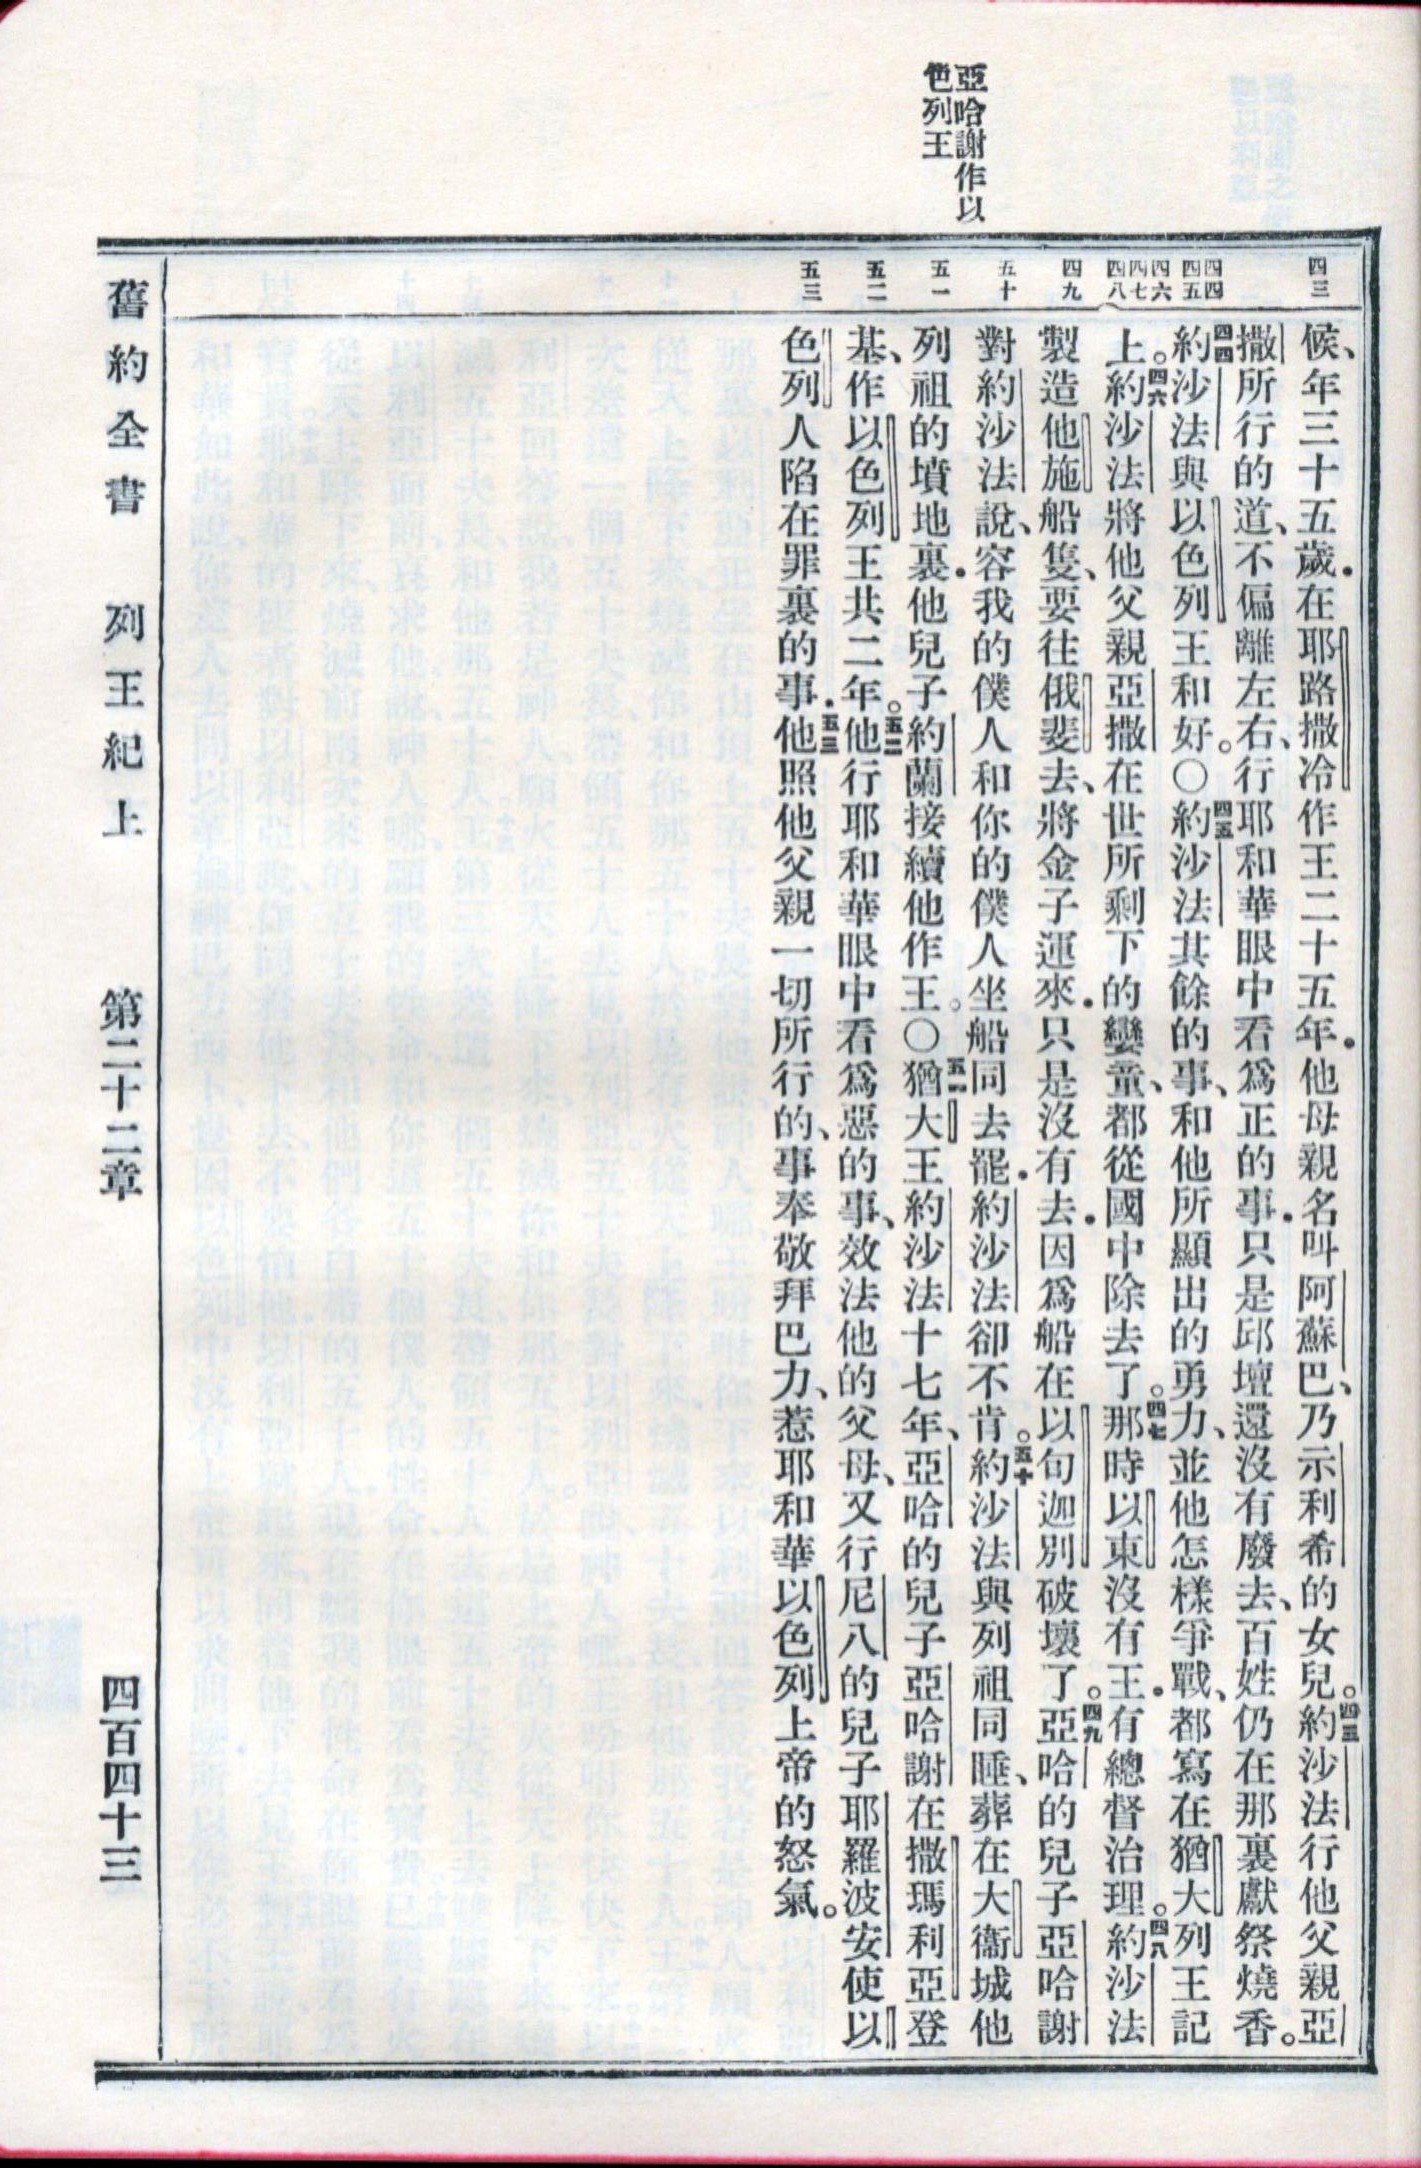 亞哈謝作以
色列王
四三
四四
四五
四六
四七
四八
四九
五十
五一
五二
五三
候、年三十五歲．在耶路撒冷作王二十五年．他母親名叫阿蘇巴、乃示利希的女兒。四三約沙法行他父親亞
撒所行的道、不偏離左右、行耶和華眼中看爲正的事．只是邱壇還沒有廢去、百姓仍在那裏獻祭燒香。
四四約沙法與以色列王和好。〇四五約沙法其餘的事、和他所顯出的勇力、並他怎樣爭戰、都寫在猶大列王記
上。四六約沙法將他父親亞撒在世所剩下的孌童、都從國中除去了。四七那時以東沒有王．有總督治理。四八約沙法
製造他施船隻、要往俄斐去、將金子運來．只是沒有去．因爲船在以旬迦別破壞了。四九亞哈的兒子亞哈謝
對約沙法說、容我的僕人和你的僕人坐船同去罷．約沙法卻不肯。五十約沙法與列祖同睡、葬在大衞城他
列祖的墳地裏．他兒子約蘭接續他作王。〇五一猶大王約沙法十七年、亞哈的兒子亞哈謝在撒瑪利亞登
基、作以色列王共二年。五二他行耶和華眼中看爲惡的事、效法他的父母、又行尼八的兒子耶羅波安使以
色列人陷在罪裏的事．五三他照他父親一切所行的、事奉敬拜巴力、惹耶和華以色列上帝的怒氣。
舊約全書　列王紀上　第二十二章　四百四十三